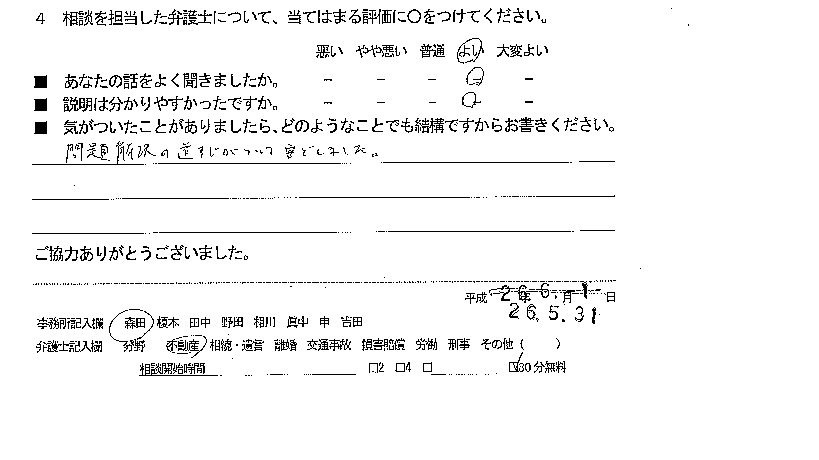 4 相談を担当した弁護士について、当てはまる評価に○をつけてください。
悪い やや悪い 普通 よい 大変よい
■ あなたの話をよく聞きましたか。 － － － － －
■ 説明は分かりやすかったですか。 － － － － －
■ 気がついたことがありましたら、どのようなことでも結構ですからお書きください。
問題解決の道すじがついて安どしました。
ご協力ありがとうございました。
平成 26年 6.月 -1-日
26.5.31
事務所記入欄 森田 榎本 田中 野田 相川 眞中 申 吉田
弁護士記入欄 分野 不動産 相続・遺言 離婚 交通事故 損害賠償 労働 刑事 その他（ ）
相談開始時間 □2 □4 □ ☑30分無料